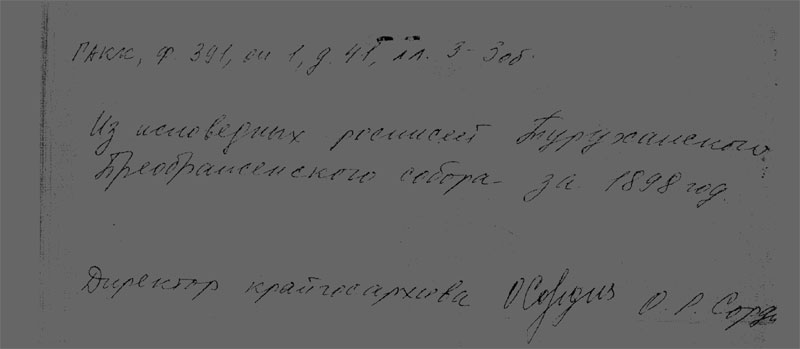 ГАКК, ф. 391, оп 1, д. 41, лл. 3-3об.
Из исповедных росписей Туруханского
Преображенского собора за 1898 год.
Директор крайгосархива О. Р. Сорд